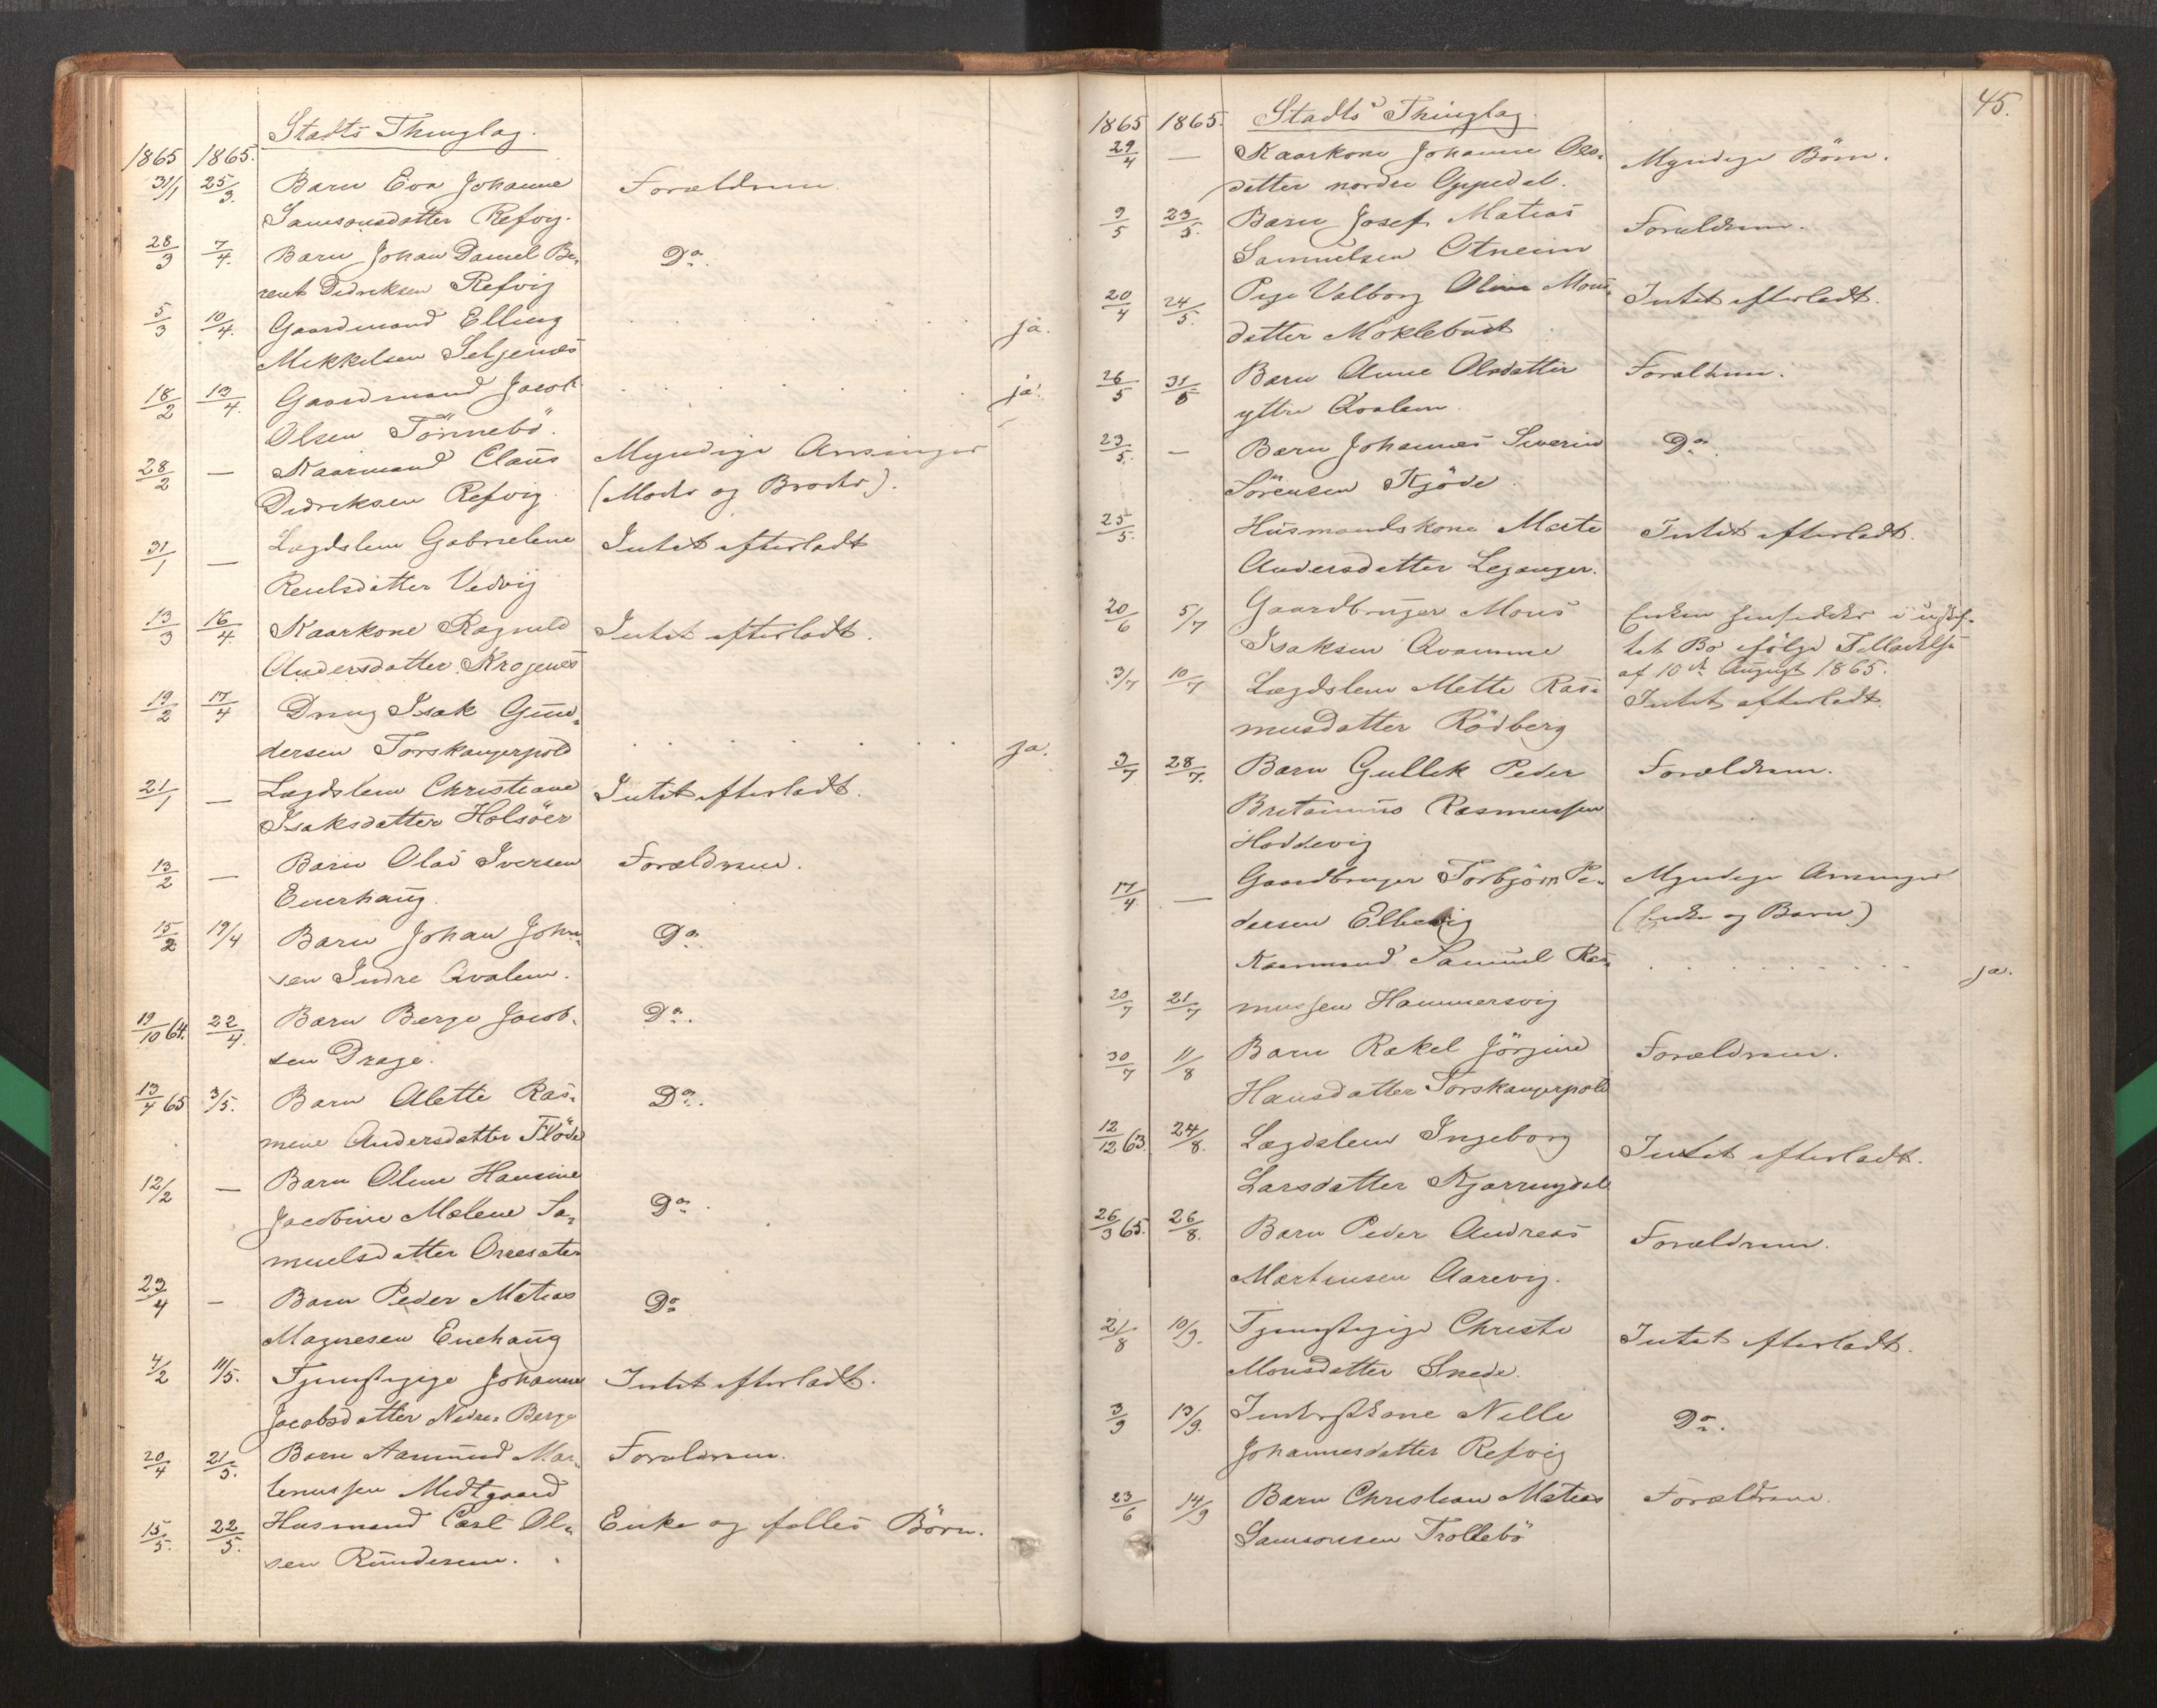 Stadts Thinglag.
1865 1865.
31/1 25/3. Barn Eva Johanne Forældrene.
Samsonsdatter Refvig.
28/3 7/4. Barn Johan Daniel Be- Do.
rent Didriksen Refvig
5/3 10/4. Gaardmand Elling ja.
Mikkelsen Seljenæs
18/2 13/4. Gaardmand Jacob ja.
Olsen Tönnebö.
28/2 — Kaarmand Claus Myndige Arvinger
Didriksen Refvig. (Moder og Broder).
31/1 — Lægdslem Gabrielene Intet efterladt
Reielsdatter Vedvig
13/3 16/4. Kaarkone Ragnild Intet efterladt.
Andersdatter Kragenæs
19/2 17/4 Dreng Isak Gun-
dersen Torskangerpold ja.
21/1 — Lægdslem Christiane Intet efterladt.
Isaksdatter Holsöer
13/2 — Barn Olai Iversen Forældrene.
Enerhaug.
15/2 19/4 Barn Johan John- Do.
sen Indre Qvalem.
19/10 64. 22/4. Barn Berge Jacob- Do.
sen Drage.
13/4 65 3/5. Barn Alette Ras- Do.
mine Andersdatter Flöde
12/2 — Barn Oline Hansine
Jacobine Malene Sa- Do.
muelsdatter Orresæter
23/4 — Barn Peder Matias Do
Magnesen Enehaug
4/2 11/5. Tjenestepige Johanne Intet efterladt.
Jacobsdatter Nedre-Berge
20/4 21/5. Barn Aamund Mar- Forældrene.
tenussen Midtgaard
15/5. 22/5. Husmand Carl Ol- Enke og fælles Börn.
sen Runderem.
45.
1865 1865. Stadts Thinglag.
29/4 — Kaarkone Johanne Ols- Myndige Börn.
datter nordre Oppedal.
9/5 23/5. Barn Josef Matias Forældrene.
Samuelsen Otneim
20/4 24/5. Pige Valborg Oline Mons- Intet efterladt.
datter Möklebust
26/5 31/5 Barn Anne Olsdatter Forældrene.
yttre Qvalem.
23/5. — Barn Johannes Severin Do.
Sörensen Kjöde.
25/5. Husmandskone Marte Intet efterladt.
Andersdatter Leganger.
20/6 5/7 Gaardbruger Mons Enken hensidder i uskif-
Isaksen Qvamme tet Bo ifölge Tilladelse
af 10de August 1865.
3/7 10/7 Lægdslem Mette Ras- Intet efterladt.
musdatter Rödberg
3/7 28/7. Barn Gullik Peder Forældrene.
Britanius Rasmussen
Hoddevig
17/4 — Gaardbruger Torbjörn Pe- Myndige Arvinger
dersen Ellevig (Enke og Barn)
Kaarmand Samuel Ras- ja.
20/7 21/7 mussen Hammersvig
30/7 11/8 Barn Rakel Jörgine Forældrene.
Hansdatter Torskangerpold
12/12 63. 24/8. Lægdslem Ingeborg Intet efterladt.
Larsdatter Kjærringdal
26/3 65. 26/8. Barn Peder Andreas Forældrene.
Martinsen Aarevig.
21/8 10/9. Tjenestepige Christi Intet efterladt.
Monsdatter Snede.
3/9 13/9. Inderstkone Nille Do.
Johannesdatter Refvig
23/6 14/9 Barn Christian Matias Forældrene.
Samsonsen Trollebö